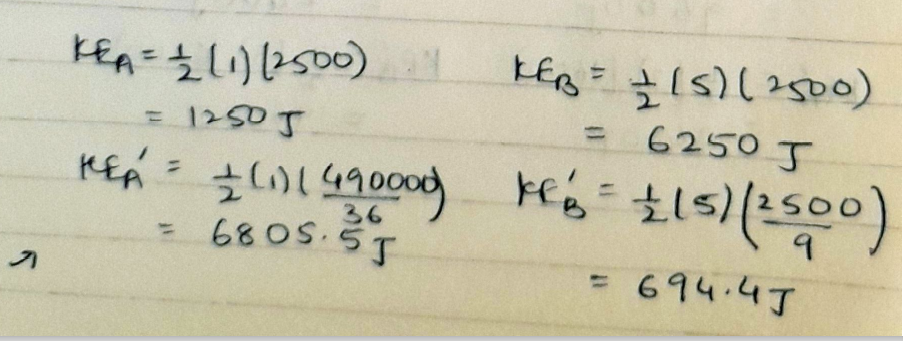 KE_A = 1/2 (1) (2500)
= 1250 J
KE_A' = 1/2 (1) (490000/36)
= 6805.5 J
KE_B = 1/2 (5) (2500)
= 6250 J
KE_B' = 1/2 (5) (2500/9)
= 694.4 J